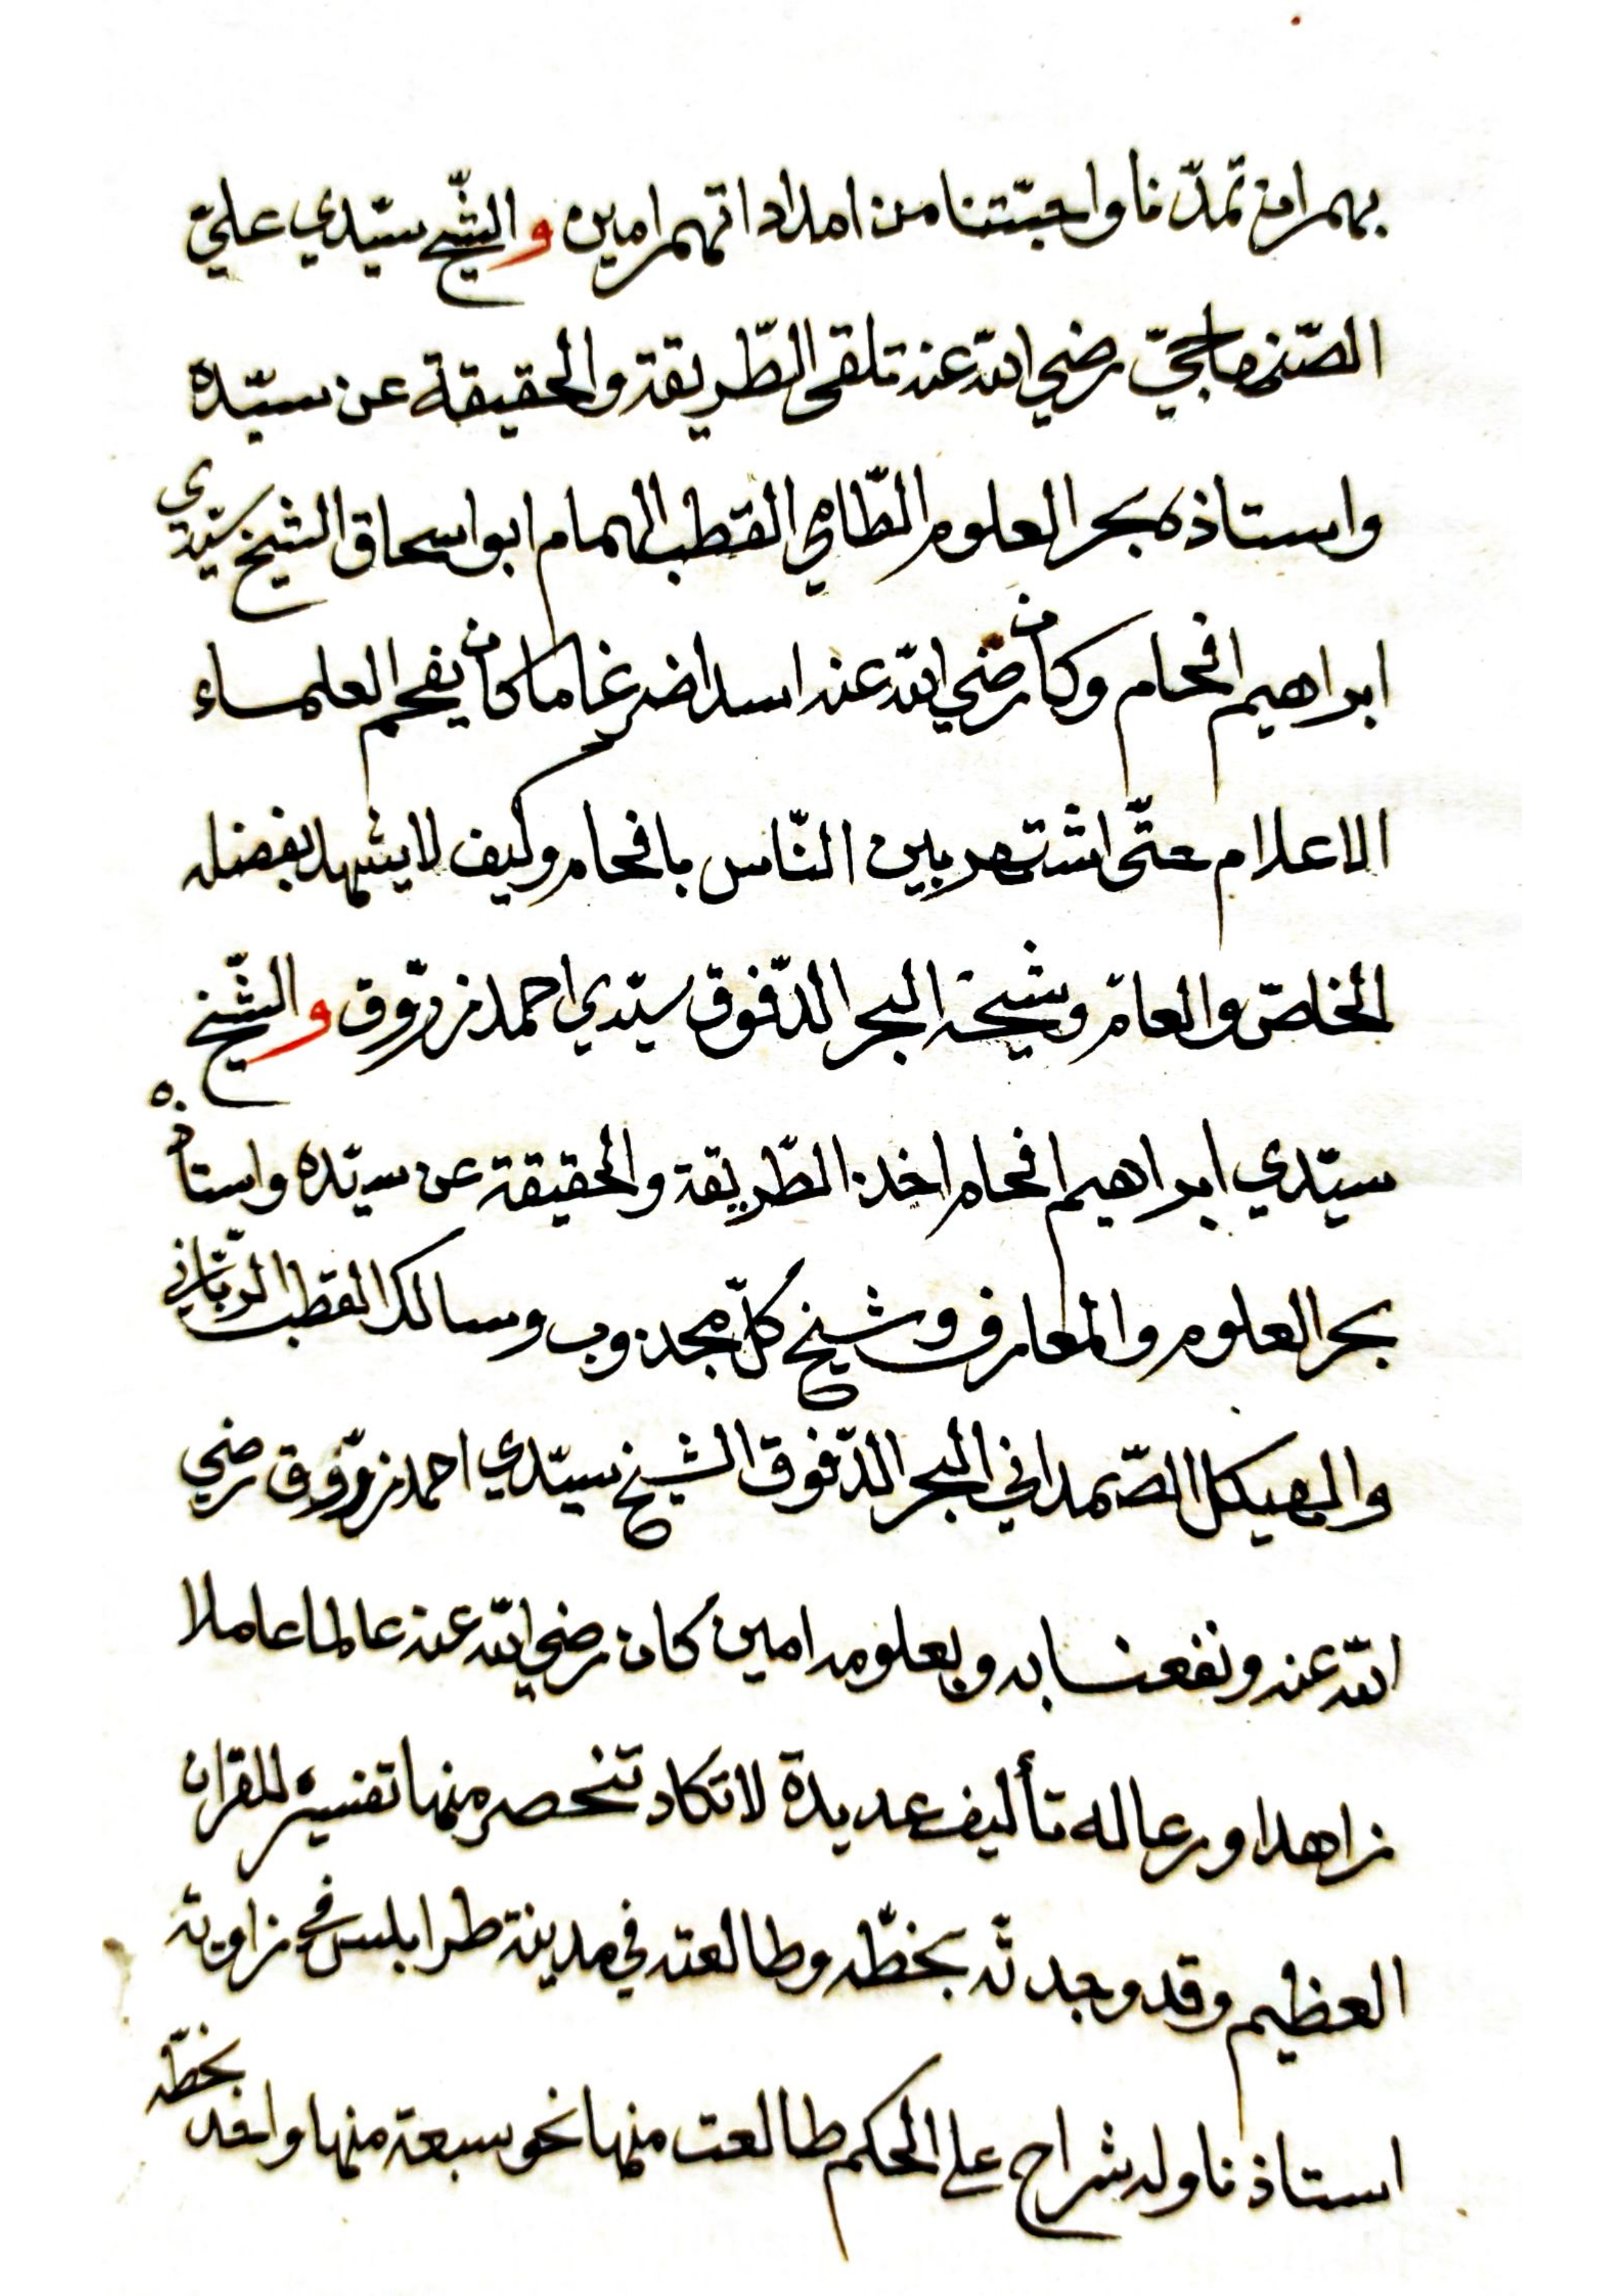 بهم ان تمدّنا واحبّتنا من امداداتهم امين والشّيخ سيّدي عليّ
الصّنهاجيّ رضي الله عنه تلقى الطّريقة والحقيقة عن سيّده
واستاذه بحر العلوم الطّامي القطب الهمام ابو اسحاق الشيخ سيّدي
ابراهيم افحام وكان رضي الله عنه اسدا ضرغاما كان يفحم العلماء
الاعلام حتّى اشتهر بين النّاس بافحام وكيف لا يشهد بفضله
الخاصّ والعامّ وشيخه البحر الدّفوق سيّدي احمد زرّوق والشّيخ
سيّدي ابراهيم افحام اخذ الطّريقة والحقيقة عن سيّده واستاذه
بحر العلوم والمعارف وشيخ كلّ مجذوب وسالك القطب الرّبّاني
والهيكل الصّمداني البحر الدّفوق الشيخ سيّدي احمد زرّوق رضي
الله عنه ونفعنا به وبعلومه امين كان رضي الله عنه عالما عاملا
زاهدا ورعا له تأليف عديدة لا تكاد تنحصر منها تفسيره للقران
العظيم وقد وجدته بخطّه وطالعته في مدينة طرابلس في زاوية
استاذنا وله شراح على الحكم طالعت منها نحو سبعة منها واحد بخطّه